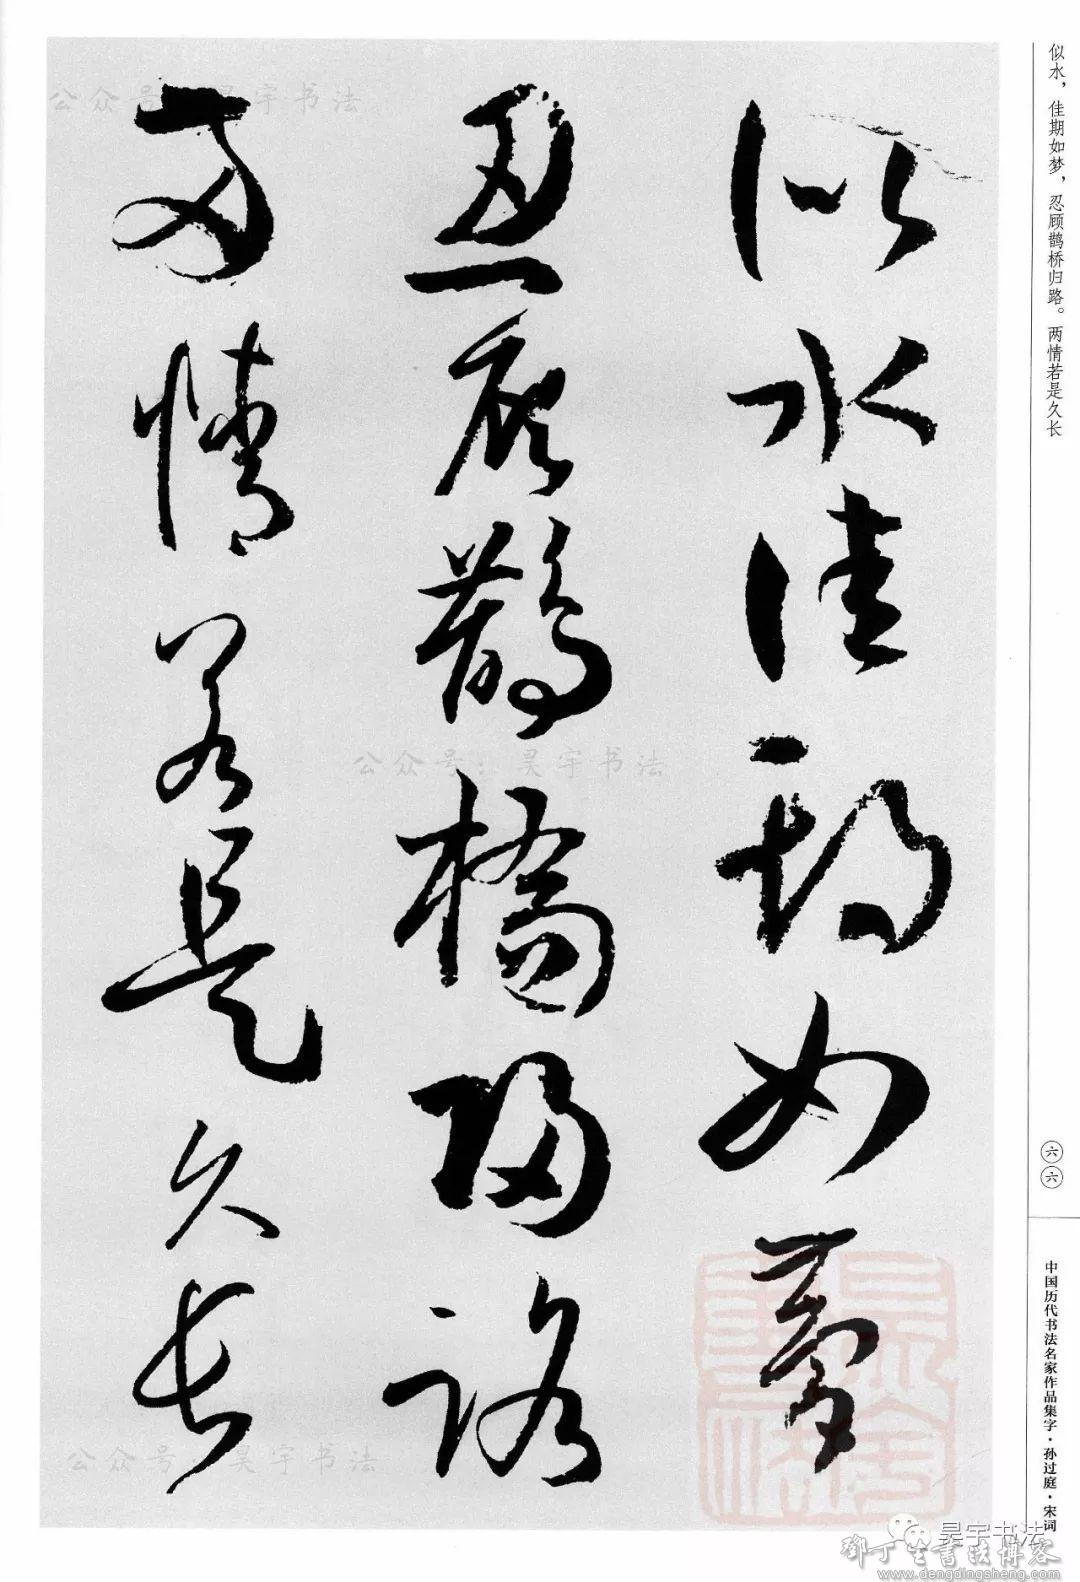 似水，佳期如梦，忍顾鹊桥归路。两情若是久长
似水佳期如夢
忍顾鹊橋歸路
两情若是久長
六六
中国历代书法名家作品集字·孙过庭·宋词
公众号：昊宇书法
公众号：昊宇书法
公众号：昊宇书法
昊宇书法
鄧丁生書法博客
www.dengdingsheng.com